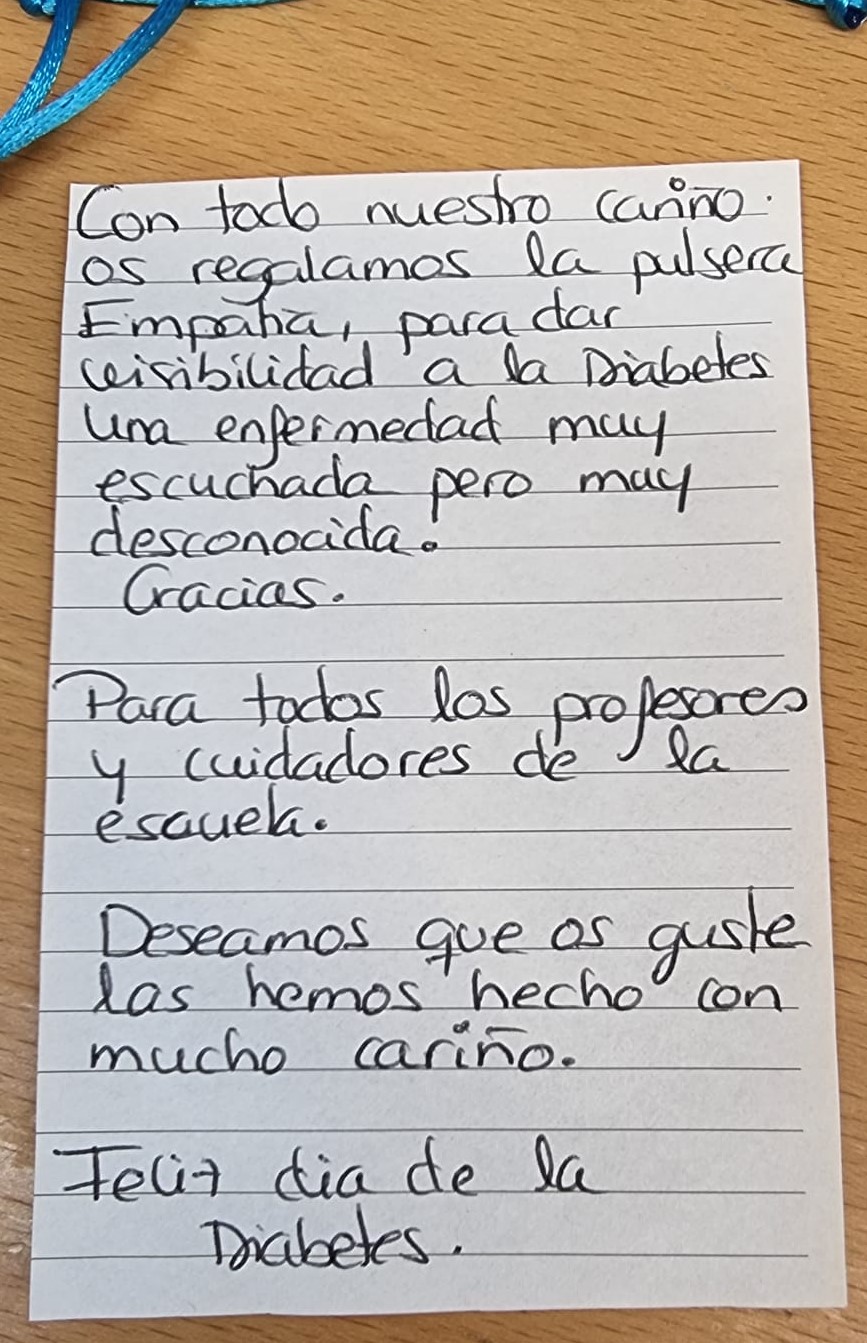 Con todo nuestro cariño.
os regalamos la pulsera
Empatía, para dar
visibilidad a la Diabetes
una enfermedad muy
escuchada pero muy
desconocida.
Gracias.
Para todos los profesores
y cuidadores de la
escuela.
Deseamos que os guste
las hemos hecho con
mucho cariño.
Feliz dia de la
Diabetes.